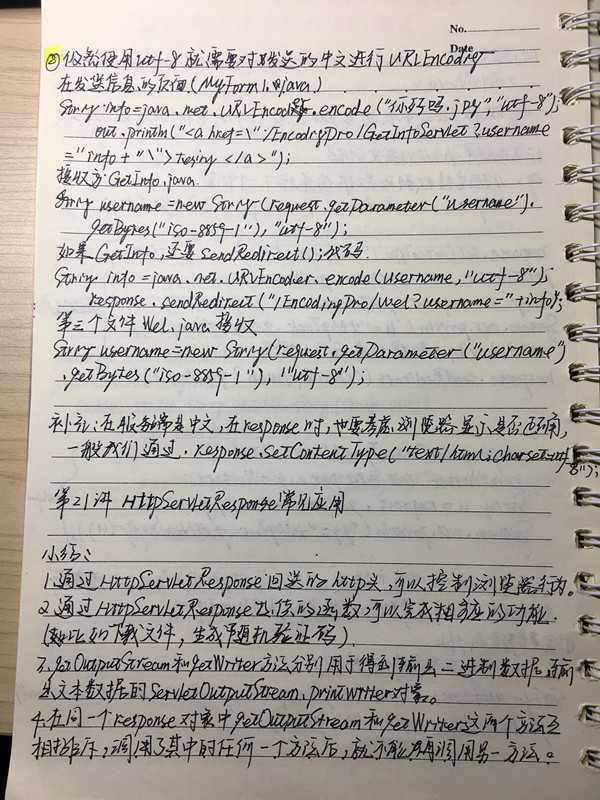 No.
Date
② 假若使用utf-8就需要对发送的中文进行URLEncoding
在发送信息的页面(MyForm1.java)
String info=java.net.URLEncoder.encode("你好吗.jpg","utf-8");
out.println("<a href=\"/EncodingPro/GetInfoServlet?username
="info+"\">tesing</a>");
接收方GetInfo.java
String username=new String(request.getParameter("username").
getBytes("iso-8859-1"),"utf-8");
如果GetInfo,还要sendRedirect();代码.
String info=java.net.URLEncoder.encode(username,"utf-8");
response.sendRedirect("/EncodingPro/Wel?username="+info);
第三个文件Wel.java接收
String username=new String(request.getParameter("username")
.getBytes("iso-8859-1"),"utf-8");
补充:在服务端是中文,在response时,也要考虑浏览器显示是否正确,
一般我们通过.response.setContentType("text/html;charset=utf-8");
第21讲 HttpServletResponse常见应用
小结:
1.通过HttpServletResponse回送的http头,可以控制浏览器行为。
2.通过HttpServletResponse提供的函数,可以完成相应的功能.
(如比如下载文件,生成随机验证码)
3.getOutputStream和getWriter方法分别用于得到输出二进制数据、输
出文本数据的ServletOutputStream、printwriter对象。
4.在同一个response对象中getOutputStream和getWriter这两个方法互
相排斥,调用了其中的任何一个方法后,就不能再调用另一方法。